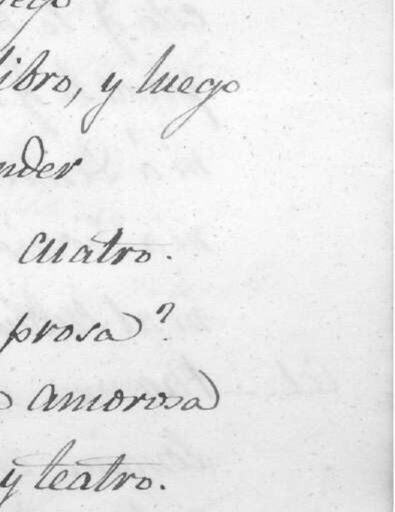 libro, y luego
nder
cuatro.
prosa?
amorosa
y teatro.